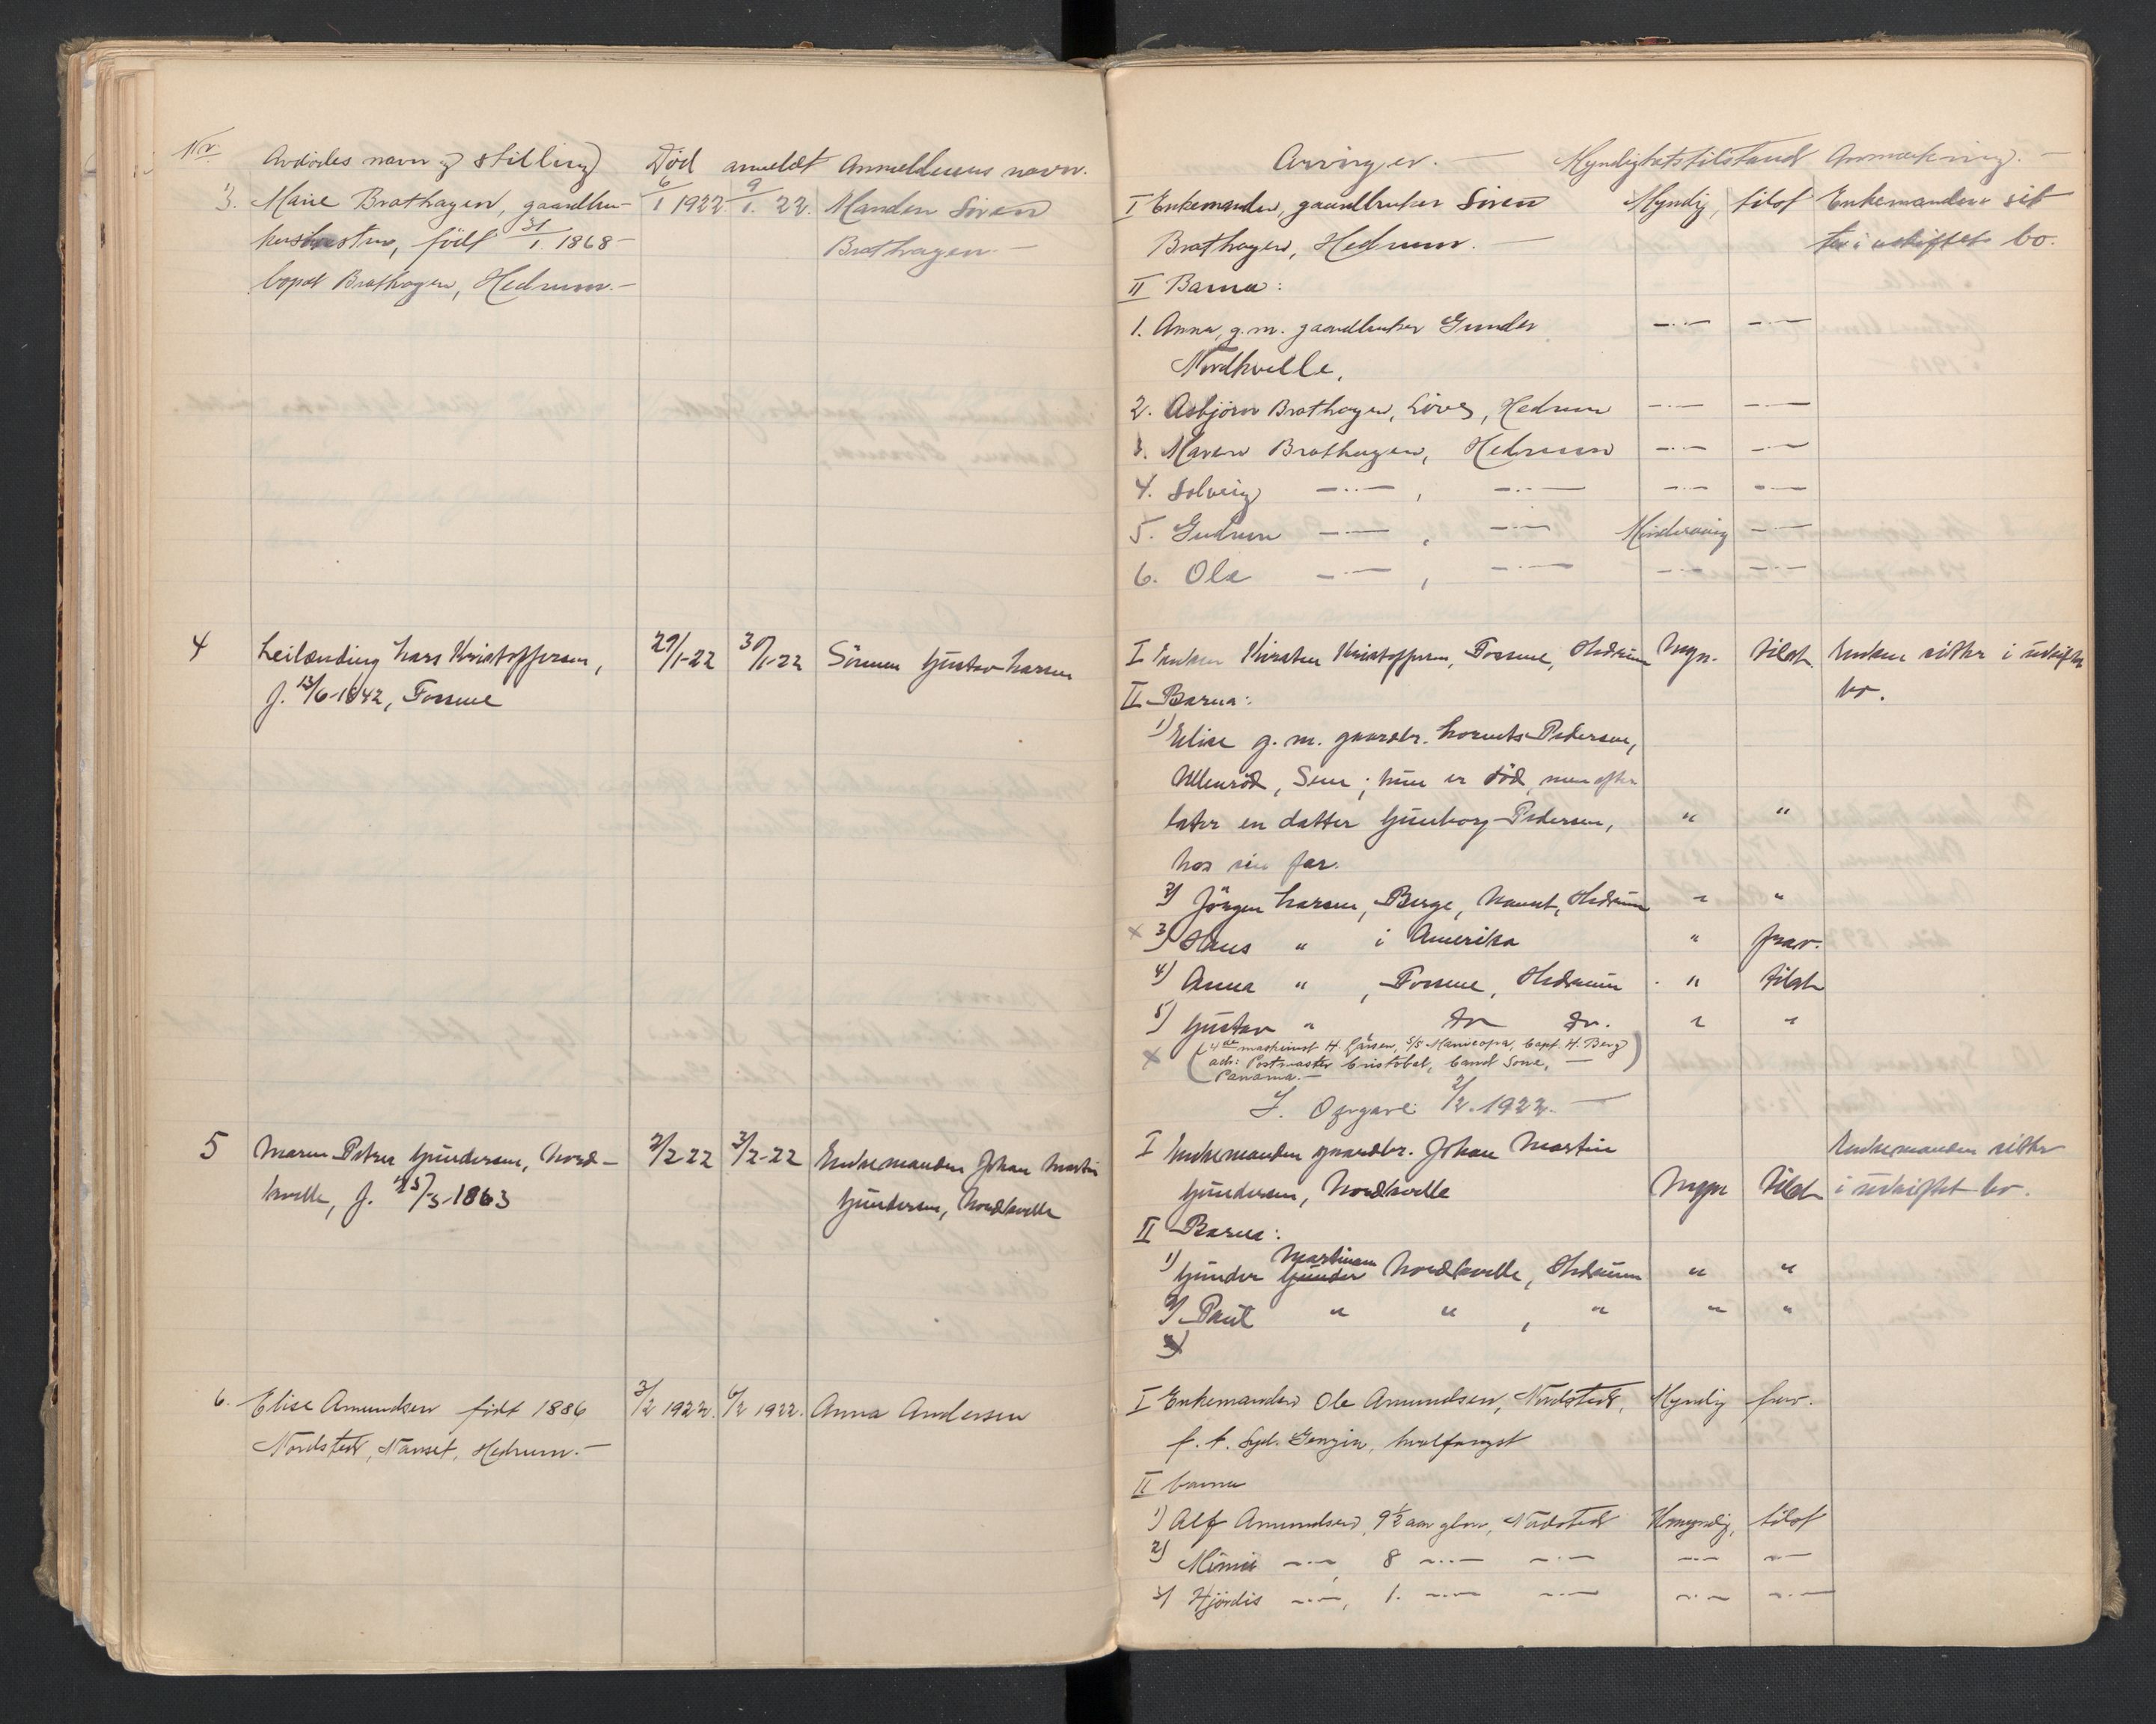 Nr. Avdödes navn og stilling Död anmeldt Anmelderens navn.
3. Marie Brathagen, gaardbru- 6/1 1922. 9/1. 22. Manden Sören
kerhustru, född 31/1. 1868 - Brathagen. -
bopæl Brathagen, Hedrum. -
4 Leilænding Lars Kristoffersen, 29/1-22 30/1-22 Sönnen Gustav Larsen
f. 13/6-1842, Fossene
5 Maren Petrea Gundersen, Nord- 2/2-22 3/2-22 Enkemanden Johan Martin
kvelle, f. 25/3-1863 Gundersen, Nordkvelle
6. Elise Amundsen född 1886 3/2 1922. 6/2 1922. Anna Andersen
Nordstedt, Nanset, Hedrum. -
Arvinger. - Myndighetstilstand Anmerkning. -
I Enkemanden, gaardbruker Sören Myndig, tilst Enkemanden sit
Brathagen, Hedrum. - ter i uskiftet bo.
II Barna:
1. Anna, g. m. gaardbruker Gunder -..- -..-
Nordkvelle,
2. Asbjörn Brathagen, Löve, Hedrum -..- -..-
3. Maren Brathagen, Hedrum -..- -..-
4. Solveig -..- , -..- -..- -..-
5. Gudrun -..- , -..- Mindreaarig -..-
6. Ole -..- , -..- -..- -..-
I Enken Kirsten Kristoffersen, Fossene, Hedrum Myn. tilst. Enken sitter i uskiftet
II Barna: bo.
1) Elise g. m. gaardbr. Lorents Pedersen,
Ullenröd, Sem; hun er död, men efter
later en datter Gunborg Pedersen, " "
hos sin far.
2) Jörgen Larsen, Berge, Nanset, Hedrum " "
x 3) Hans " i Amerika " frav.
4) Anna " , Fossene, Hedrum " tilst
5) Gustav " do do. " "
x (4de maskinist H. Larsen, S/S Maricopa, Capt. H. Berg)
adr: Postmaster Cristobal, Canal Zone, -
Panama. -
J. Opgave 2/2. 1922. -
I Enkemanden gaardbr. Johan Martin Enkemanden sitter
Gundersen, Nordkvelle Myn tilst i uskiftet bo.
II Barna:
1) Gunder Gunder Martinsen Nordkvelle, Hedrum " "
2) Paul " " , " " "
3)
I Enkemanden Ole Amundsen, Nordstedt, Myndig frav.
f. t. Syd. Georgia, hvalfangst
II barna
1) Alf Amundsen, 9 1/2 aar glm, Nordstedt Umyndig, tilst
2) Mimi -..-, 8 -..- -..- -..- -..-
3) Hjördis -..-, 1. -..- -..- -..- -..-